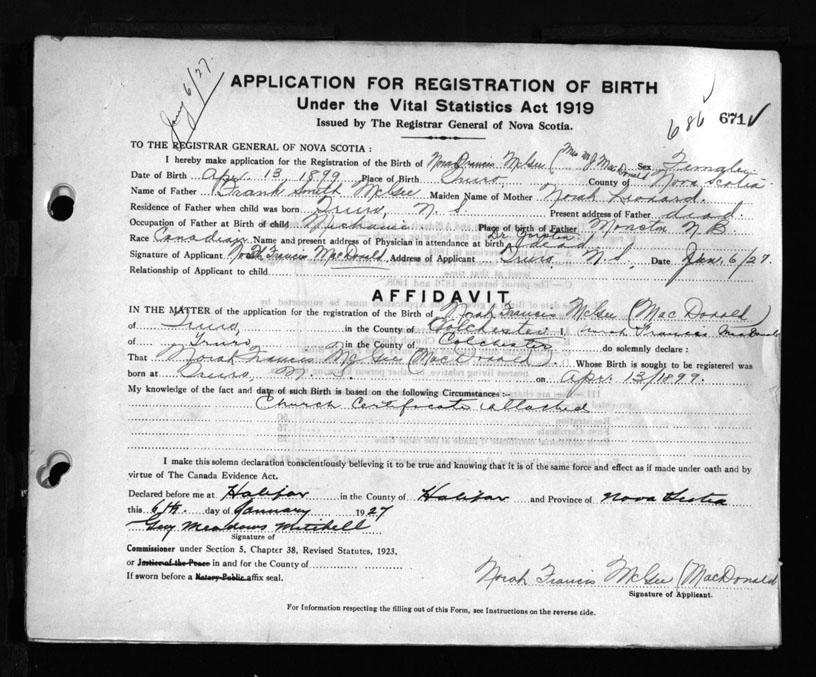 Jany 6/27.
APPLICATION FOR REGISTRATION OF BIRTH
Under the Vital Statistics Act 1919
Issued by The Registrar General of Nova Scotia.
686 671
TO THE REGISTRAR GENERAL OF NOVA SCOTIA :
I hereby make application for the Registration of the Birth of Norah Francis McGee (Mrs J MacDonald Sex Female
Date of Birth Apr. 13, 1899 Place of Birth Truro, County of Nova Scotia
Name of Father Frank Smith McGee Maiden Name of Mother Norah Leonard.
Residence of Father when child was born Truro, N. S. Present address of Father dead.
Occupation of Father at Birth of child Mechanic Place of birth of Father Moncton N.B.
Race Canadian Name and present address of Physician in attendance at birth Dr. dead.
Signature of Applicant Norah Francis MacDonald Address of Applicant Truro, N. S. Date Jan. 6/27.
Relationship of Applicant to child
AFFIDAVIT
IN THE MATTER of the application for the registration of the Birth of Norah Francis McGee (MacDonald)
of Truro, in the County of Colchester I, Norah Francis MacDonald
of Truro, in the County of Colchester do solemnly declare :
That Norah Francis McGee (MacDonald). Whose Birth is sought to be registered was
born at Truro, N. S. on Apr. 13/1899.
My knowledge of the fact and date of such Birth is based on the following Circumstances :-
Church Certificate attached
I make this solemn declaration conscientiously believing it to be true and knowing that it is of the same force and effect as if made under oath and by
virtue of The Canada Evidence Act.
Declared before me at Halifax in the County of Halifax and Province of Nova Scotia
this 6th. day of January 1927
Guy Meadows Mitchell
Signature of
Commissioner under Section 5, Chapter 38, Revised Statutes, 1923.
or Justice of the Peace in and for the County of
If sworn before a Notary Public affix seal.
Norah Francis McGee (MacDonald
Signature of Applicant.
For Information respecting the filling out of this Form, see Instructions on the reverse side.